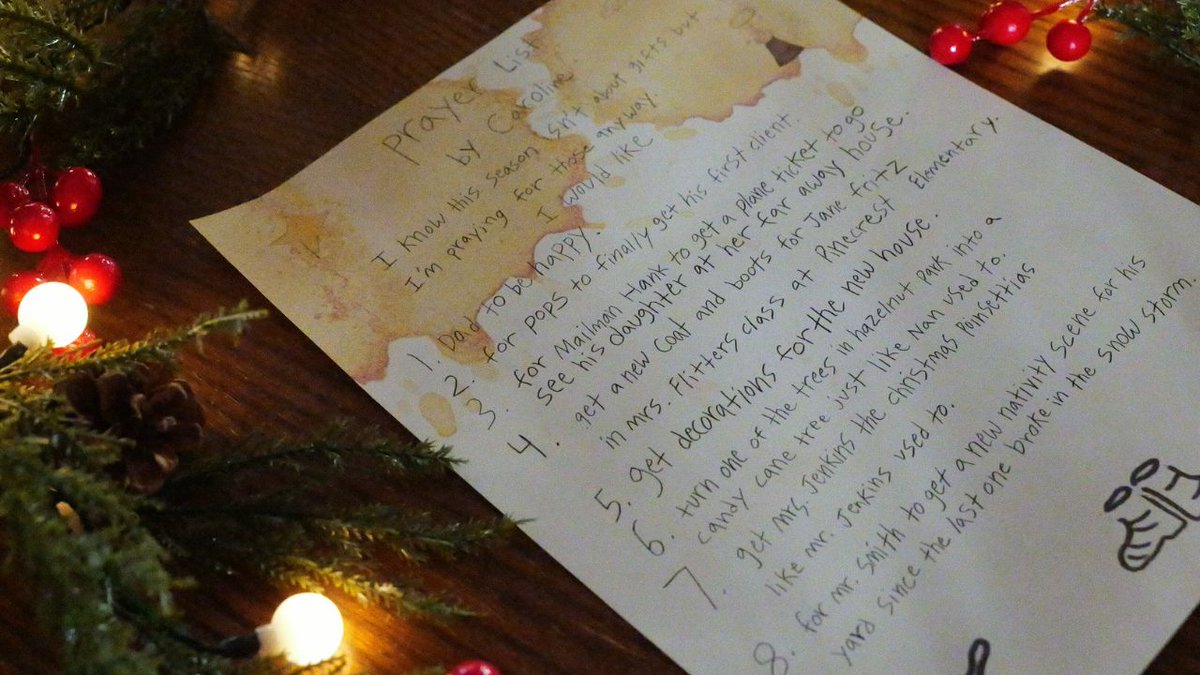 Prayer List
by Caroline
I know this season isn't about gifts but
I'm praying for those anyway.
I would like
1. Dad to be happy.
2. for pops to finally get his first client.
3. for Mailman Hank to get a plane ticket to go
see his daughter at her far away house.
4. get a new coat and boots for Jane fritz
in mrs. Flitters class at Pinecrest Elementary.
5. get decorations for the new house.
6. turn one of the trees in hazelnut Park into a
candy cane tree just like Nan used to.
7. get mrs. Jenkins the christmas Poinsettias
like mr. Jenkins used to.
8. for mr. Smith to get a new nativity scene for his
yard since the last one broke in the snow storm.